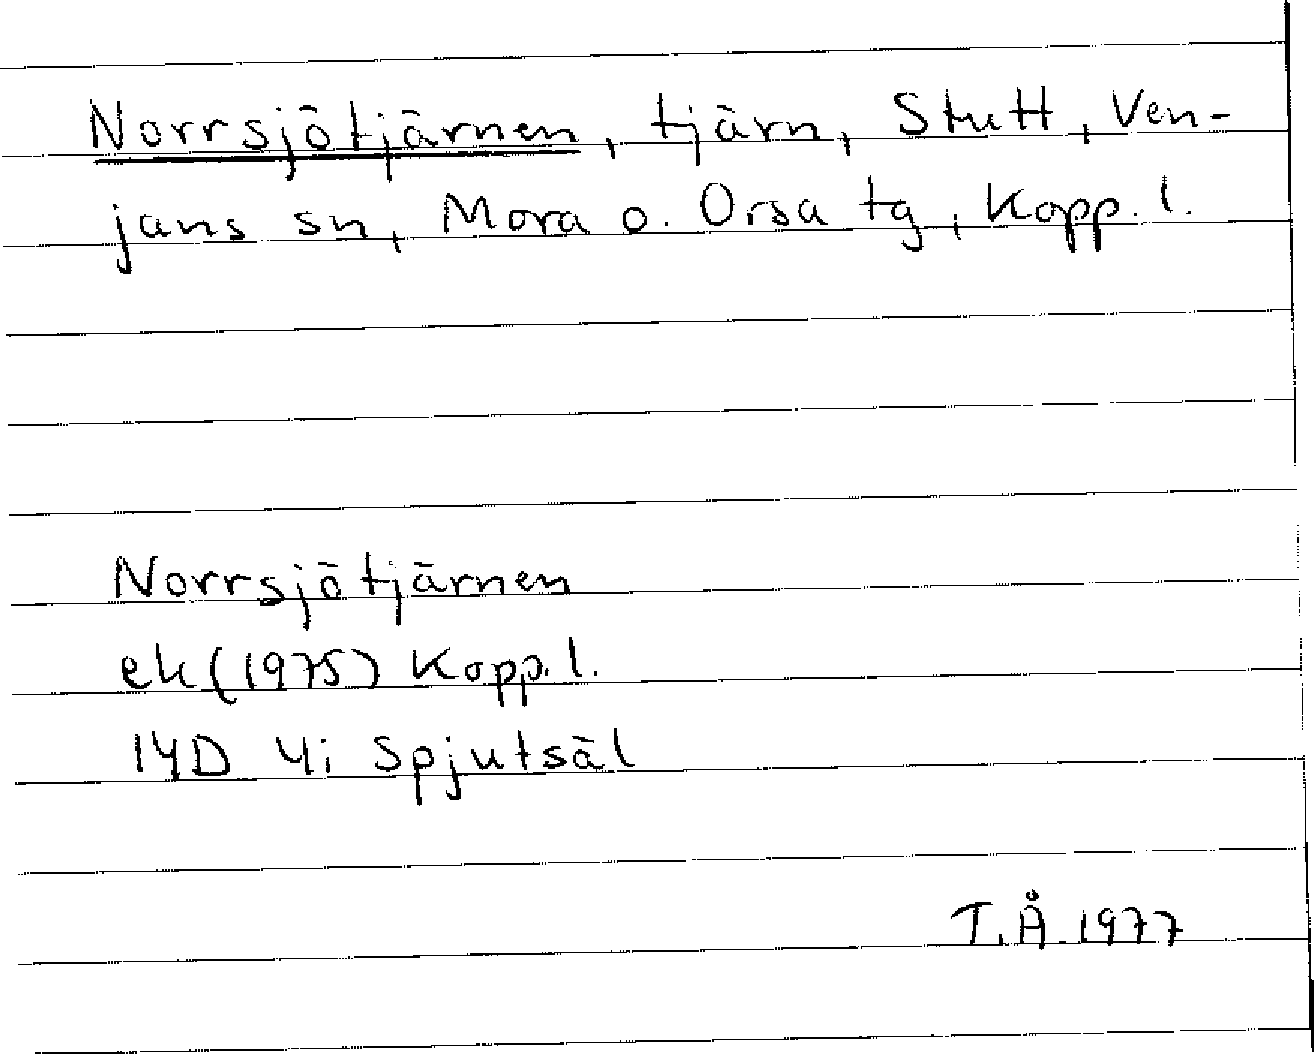 Norrsjötjärnen, tjärn, Stutt, Ven-
jans sn, Mora o. Orsa tg, Kopp. l.
Norrsjötjärnen
ek (1975) Kopp. l.
14D 4i Spjutsäl
T.Å. 1977